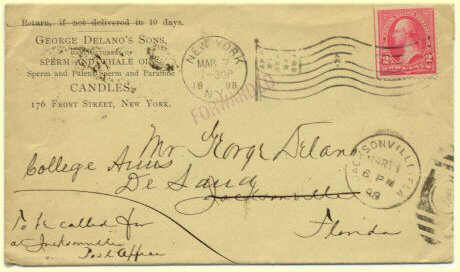 Return, if not delivered in 10 days.
GEORGE DELANO'S SONS,
MANUFACTURERS OF
SPERM AND WHALE OILS,
Sperm and Patent Sperm and Paraffine
CANDLES,
176 FRONT STREET, NEW YORK.
NEW YORK
MAR 7
-30P
1898
N.Y.
FORWARDED
2 2
Mr George Delano
College Arms
De Land
Jacksonville
Florida
JACKSONVILLE
6 PM
98
To be called for
at Jacksonville
Post Office